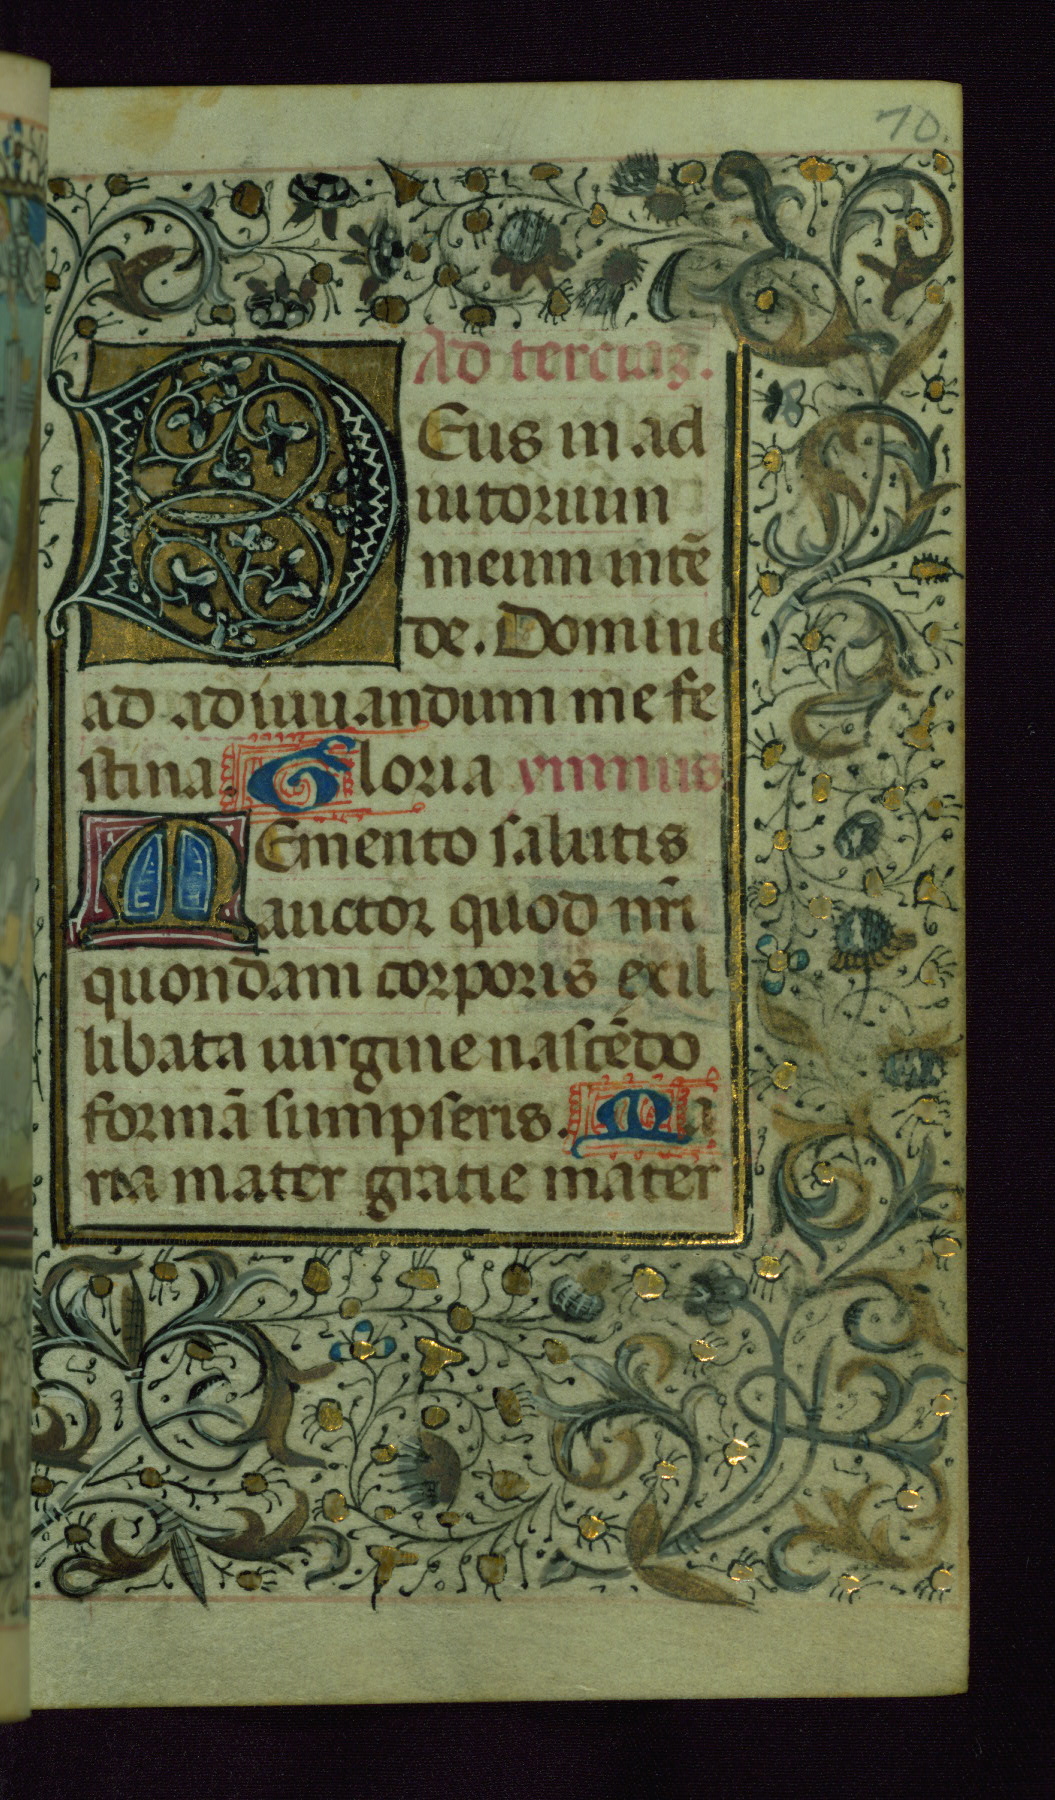 70.
Ad terciaz.
DEus in ad
iutorium
meum intē
de. Domine
ad adiuuandum me fe
stina. Gloria ymnus
MEmento salutis
auctor quod nr̄i
quondam corporis ex il
libata uirgine nascēdo
formā sumpseris. Ma
ria mater gratie mater